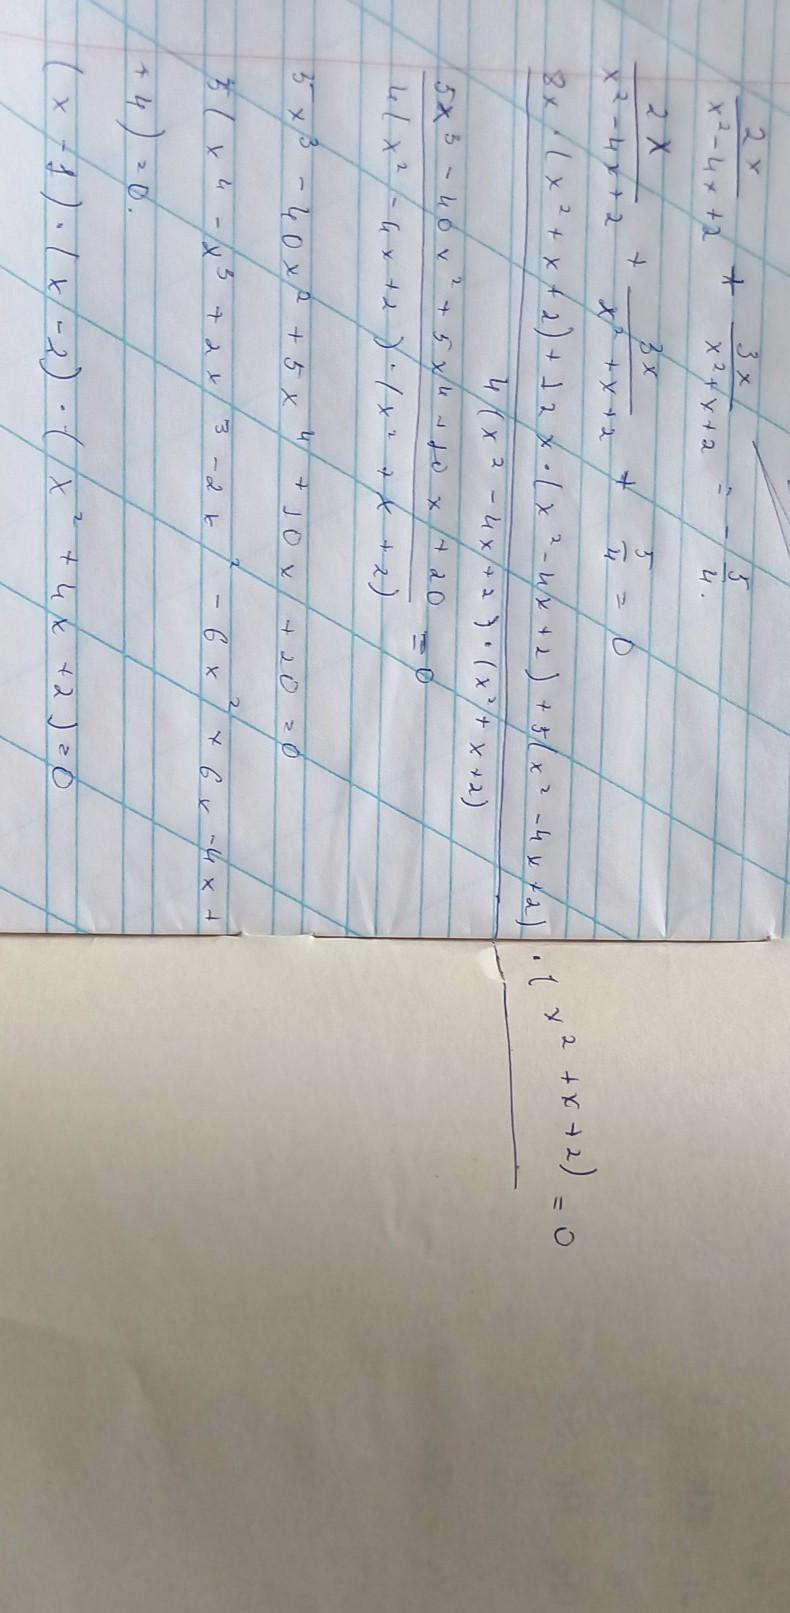 2x/(x² - 4x + 2) + 3x/(x² + x + 2) = - 5/4.
2x/(x² - 4x + 2) + 3x/(x² + x + 2) + 5/4 = 0
8x · (x² + x + 2) + 12x · (x² - 4x + 2) + 5(x² - 4x + 2) · (x² + x + 2) = 0
4(x² - 4x + 2) · (x² + x + 2)
5x³ - 40x² + 5x⁴ + 10x + 20 = 0
4(x² - 4x + 2) · (x² + x + 2)
5x³ - 40x² + 5x⁴ + 10x + 20 = 0
5(x⁴ - x³ + 2x³ - 2x² - 6x² + 6x - 4x +
+ 4) = 0.
(x - 1) · (x - 2) · (x² + 4x + 2) = 0